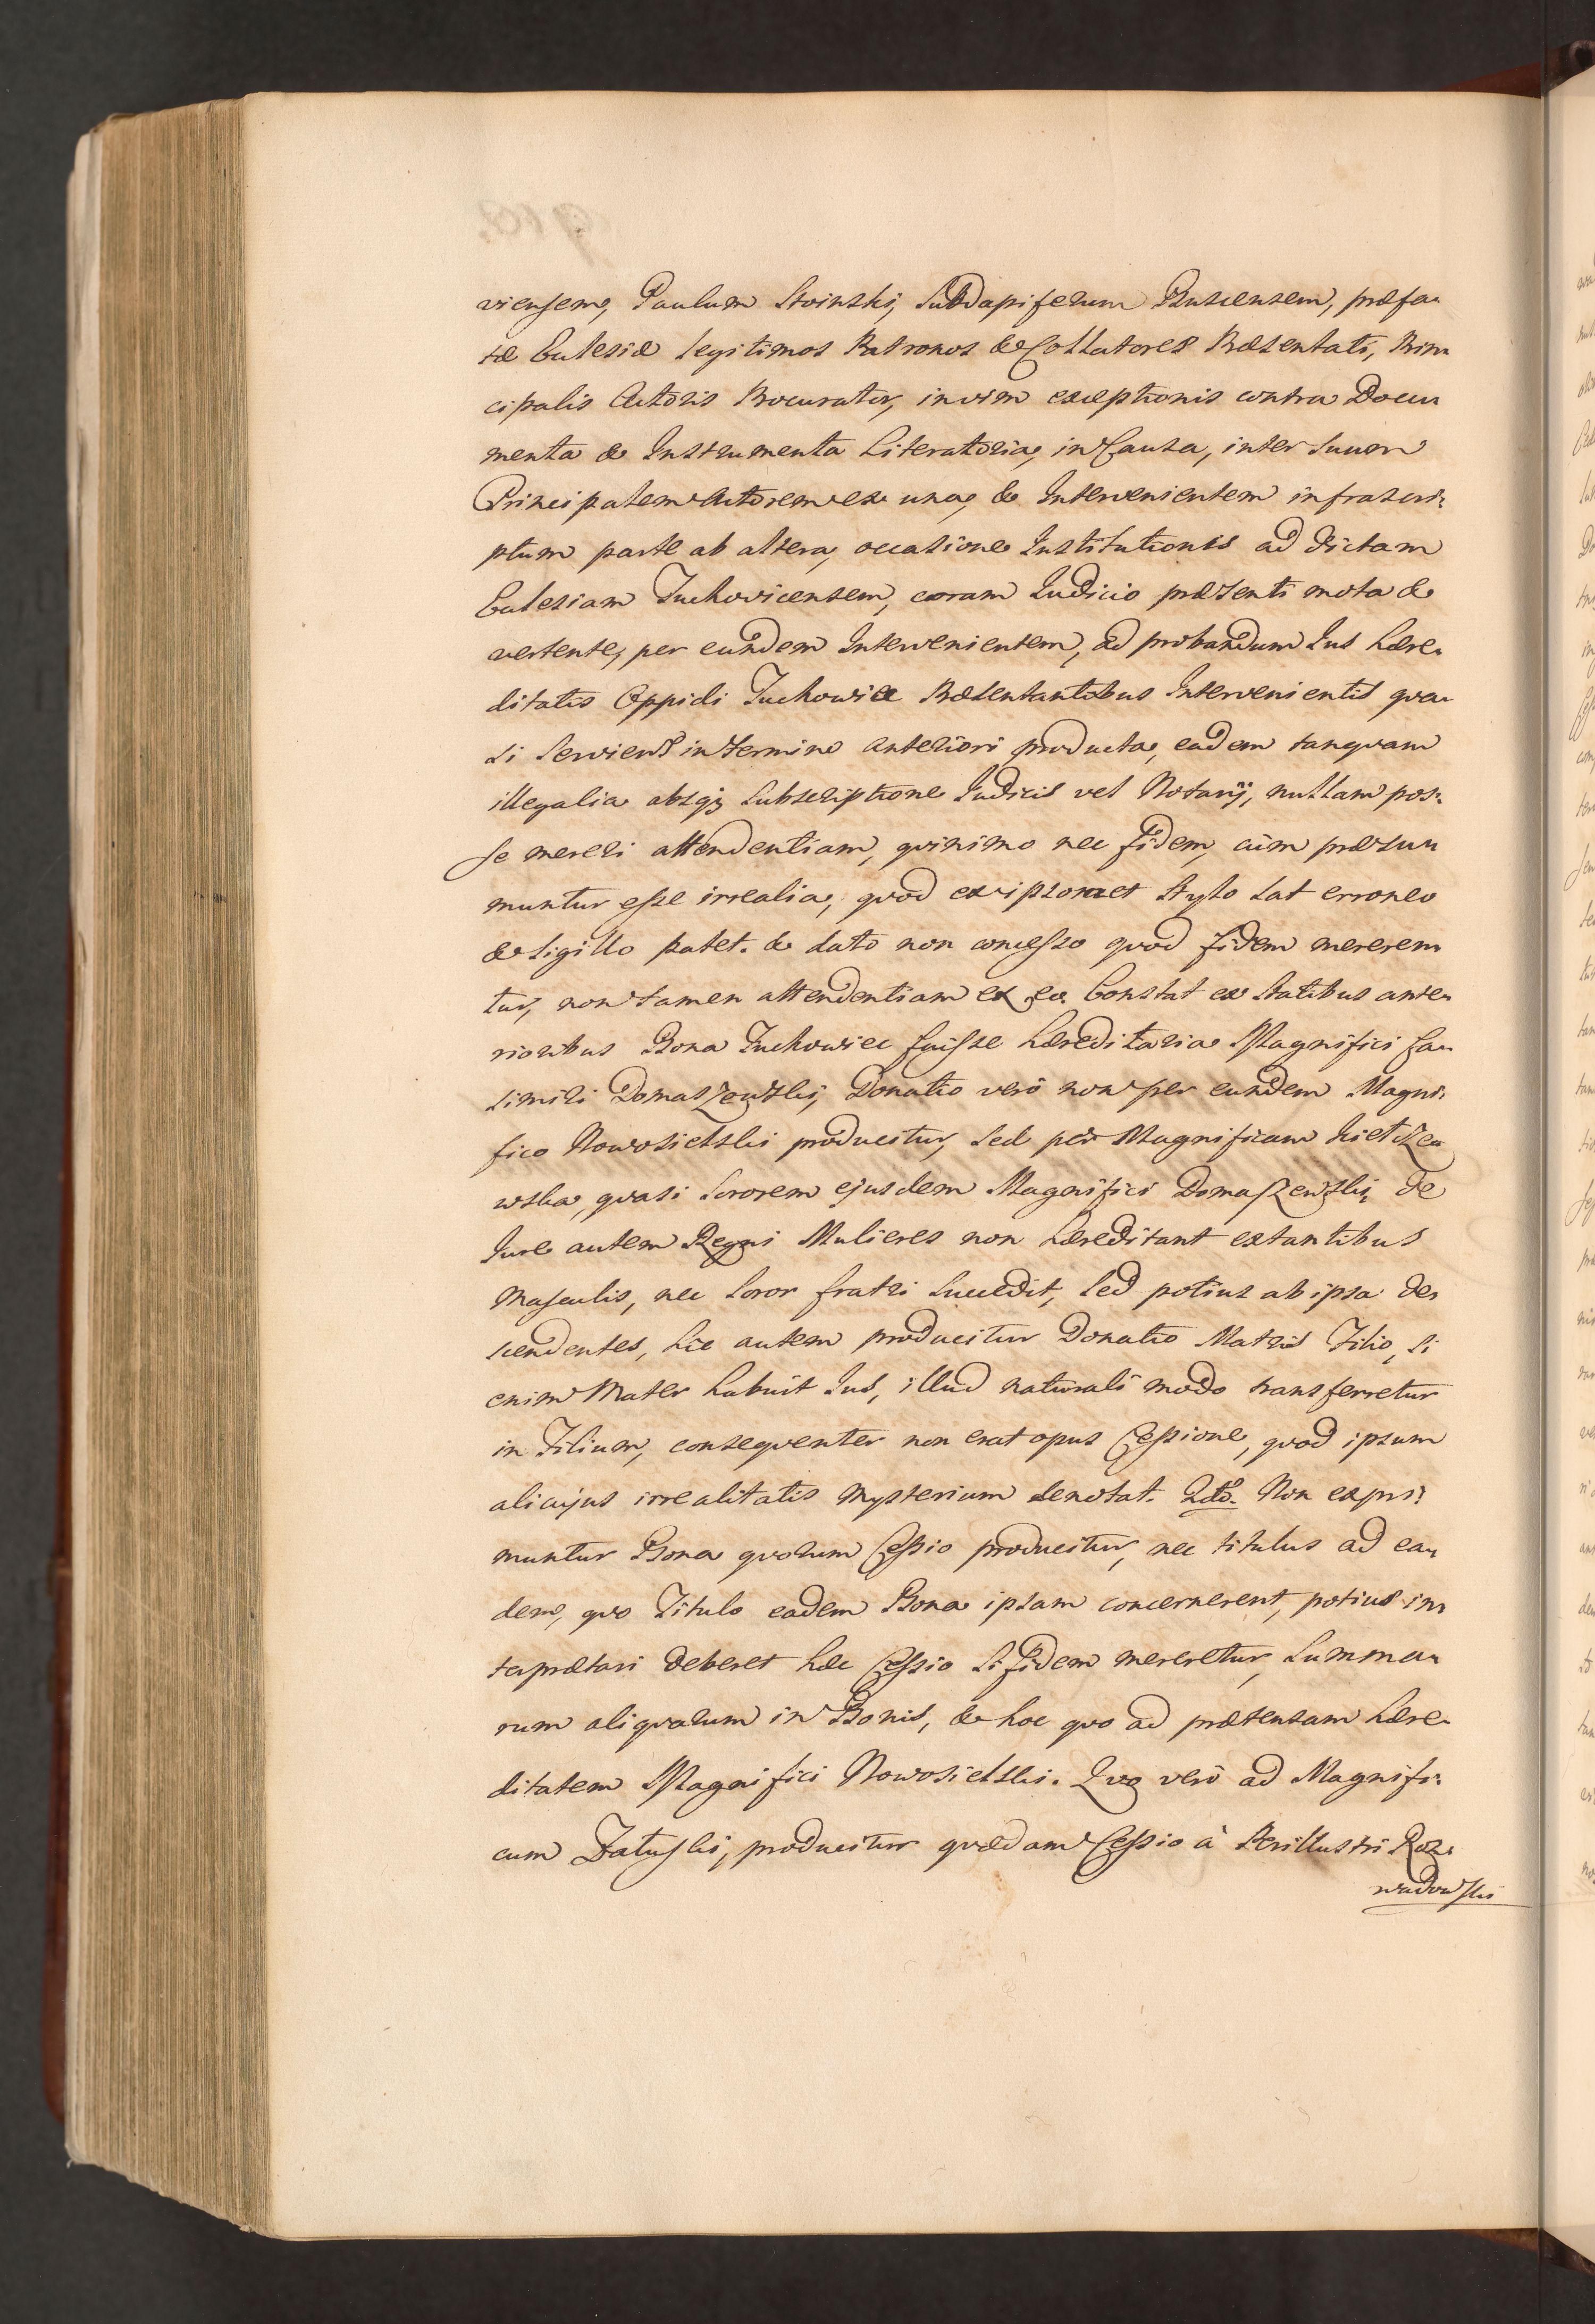 viensem, Paulum Stoinski, Subdapiferum Buscensem, præfa-
tæ Ecclesiæ legitimos Patronos & Collatores Præsentati, Prin-
cipalis Actoris Procurator, in vim exceptionis contra Docu-
menta & Instrumenta Literatoria, in Causa, inter suum
Principalem Actorem ex una, & Intervenientem infrascri-
ptum parte ab altera, occasione Institutionis ad dictam
Ecclesiam Tuchovicensem, coram Judicio præsenti mota &
vertente, per eundem Intervenientem, ad probandum Jus hære-
ditatis Oppidi Tuchowice Præsentantibus Intervenientis qva-
si serviens in termino anteriori producta, eadem tanqvam
illegalia absq3 subscriptione Judicis vel Notarij, nullam pos-
se mereri attendentiam, qvinimo nec fidem, cùm præsu-
muntur esse irrealia, qvod ex ipsomet stylo sat erroneo
& sigillo patet. & dato non concesso qvod fidem mereren-
tur, non tamen attendentiam ex eo. Constat ex statibus ante-
rioribus Bona Tuchowiec fuisse hæreditaria Magnifici Ca-
simiri Domaszewski, Donatio verò non per eundem Magni-
fico Nowosielski producitur, sed per Magnificam
wska, qvasi sororem ejusdem Magnifici Domaszewski, de
Jure autem Regni Mulieres non hæreditant extantibus
Masculis, nec soror fratri succedit, sed potius ab ipsa de-
scendentes, hic autem producitur Donatio Matris Filio, si
enim Mater habuit Jus, illud naturali modo transferretur
in Filium, conseqventer non erat opus Cessione, qvod ipsum
alicujus irrealitatis mysterium denotat. 2dò. Non expri-
muntur Bona qvorum Cessio producitur, nec titulus ad ea-
dem, qvo Titulo eadem Bona ipsam concernerent, potius in-
terprætari deberet hæc Cessio si fidem mereretur, summa-
rum aliqvarum in Bonis, & hoc qvo ad prætensam hære-
ditatem Magnifici Nowosielski. Qvo verò ad Magnifi-
cum Zatuski, producitur qvædam Cessio à Perillustri Roz-
wadowski